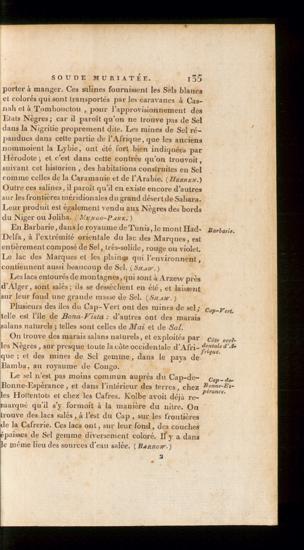 SOUDE MURIATÉE. 135
porter à manger. Ces salines fournissent les Sels blancs
et colorés qui sont transportés par les caravanes à Cas-
nah et à Tombouctou, pour l'approvisionnement des
Etats Nègres; car il paroît qu'on ne trouve pas de Sel
dans la Nigritie proprement dite. Les mines de Sel ré-
pandues dans cette partie de l'Afrique, que les anciens
nommoient la Lybie, ont été fort bien indiquées par
Hérodote; et c'est dans cette contrée qu'on trouvoit,
suivant cet historien, des habitations construites en Sel
comme celles de la Caramanie et de l'Arabie. (HEEREN.)
Outre ces salines, il paroît qu'il en existe encore d'autres
sur les frontières méridionales du grand désert de Sahara.
Leur produit est également vendu aux Nègres des bords
du Niger ou Joliba. (MUNGO-PARK.)
En Barbarie, dans le royaume de Tunis, le mont Had-
Delfa, à l'extrémité orientale du lac des Marques, est
entièrement composé de Sel, très-solide, rouge ou violet.
Le lac des Marques et les plaines qui l'environnent,
contiennent aussi beaucoup de Sel. (SHAW.)
Les lacs entourés de montagnes, qui sont à Arzew près
d'Alger, sont salés; ils se dessèchent en été, et laissent
sur leur fond une grande masse de Sel. (SHAW.)
Plusieurs des îles du Cap-Vert ont des mines de sel;
telle est l'île de Bona-Vista: d'autres ont des marais
salans naturels; telles sont celles de Mai et de Sal.
On trouve des marais salans naturels, et exploités par
les Nègres, sur presque toute la côte occidentale d'Afri-
que; et des mines de Sel gemme, dans le pays de
Bamba, au royaume de Congo.
Le sel n'est pas moins commun auprès du Cap-de-
Bonne-Espérance, et dans l'intérieur des terres, chez
les Hottentots et chez les Cafres. Kolbe avoit déjà re-
marqué qu'il s'y formoit à la manière du nitre. On
trouve des lacs salés, à l'est du Cap, sur les frontières
de la Cafrerie. Ces lacs ont, sur leur fond, des couches
épaisses de Sel gemme diversement coloré. Il y a dans
le même lieu des sources d'eau salée. (BARROW.)
2
Barbarie.
Cap-Vert.
Côte occi-
dentale d'A-
frique.
Cap-de-
Bonne-Es-
pérance.